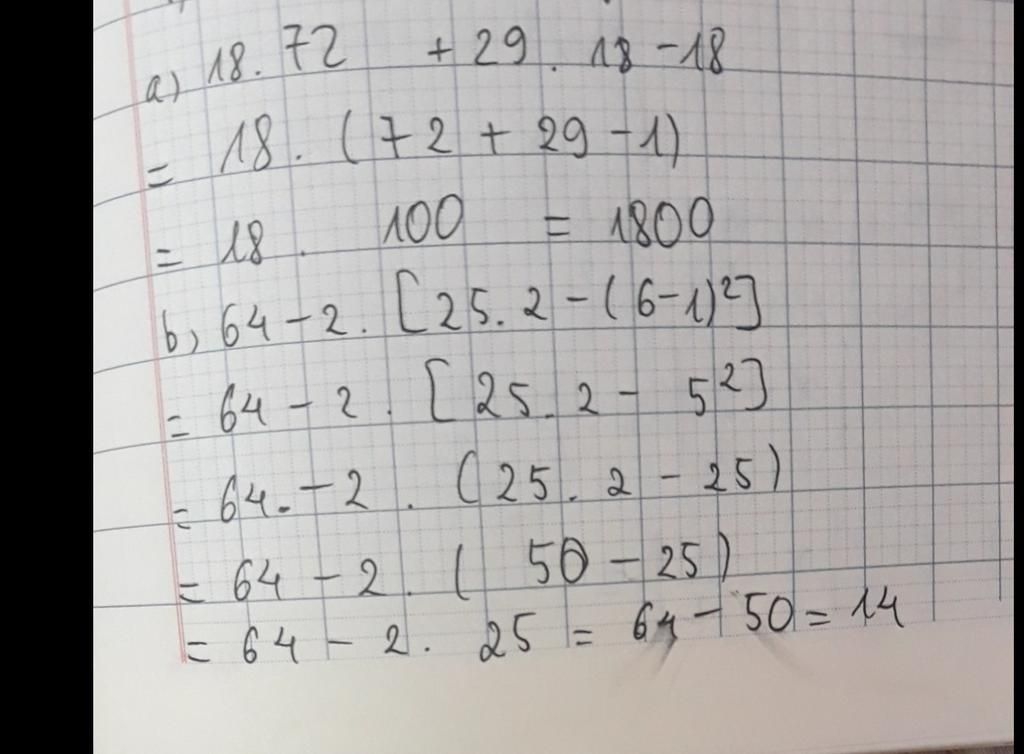 a) 18. 72 + 29 . 18 - 18
= 18 . (72 + 29 - 1)
= 18 . 100 = 1800
b, 64 - 2 . [25. 2 - (6-1)²]
= 64 - 2 . [25. 2 - 5²]
= 64. - 2 . (25 . 2 - 25)
= 64 - 2 . ( 50 - 25)
= 64 - 2 . 25 = 64 - 50 = 14